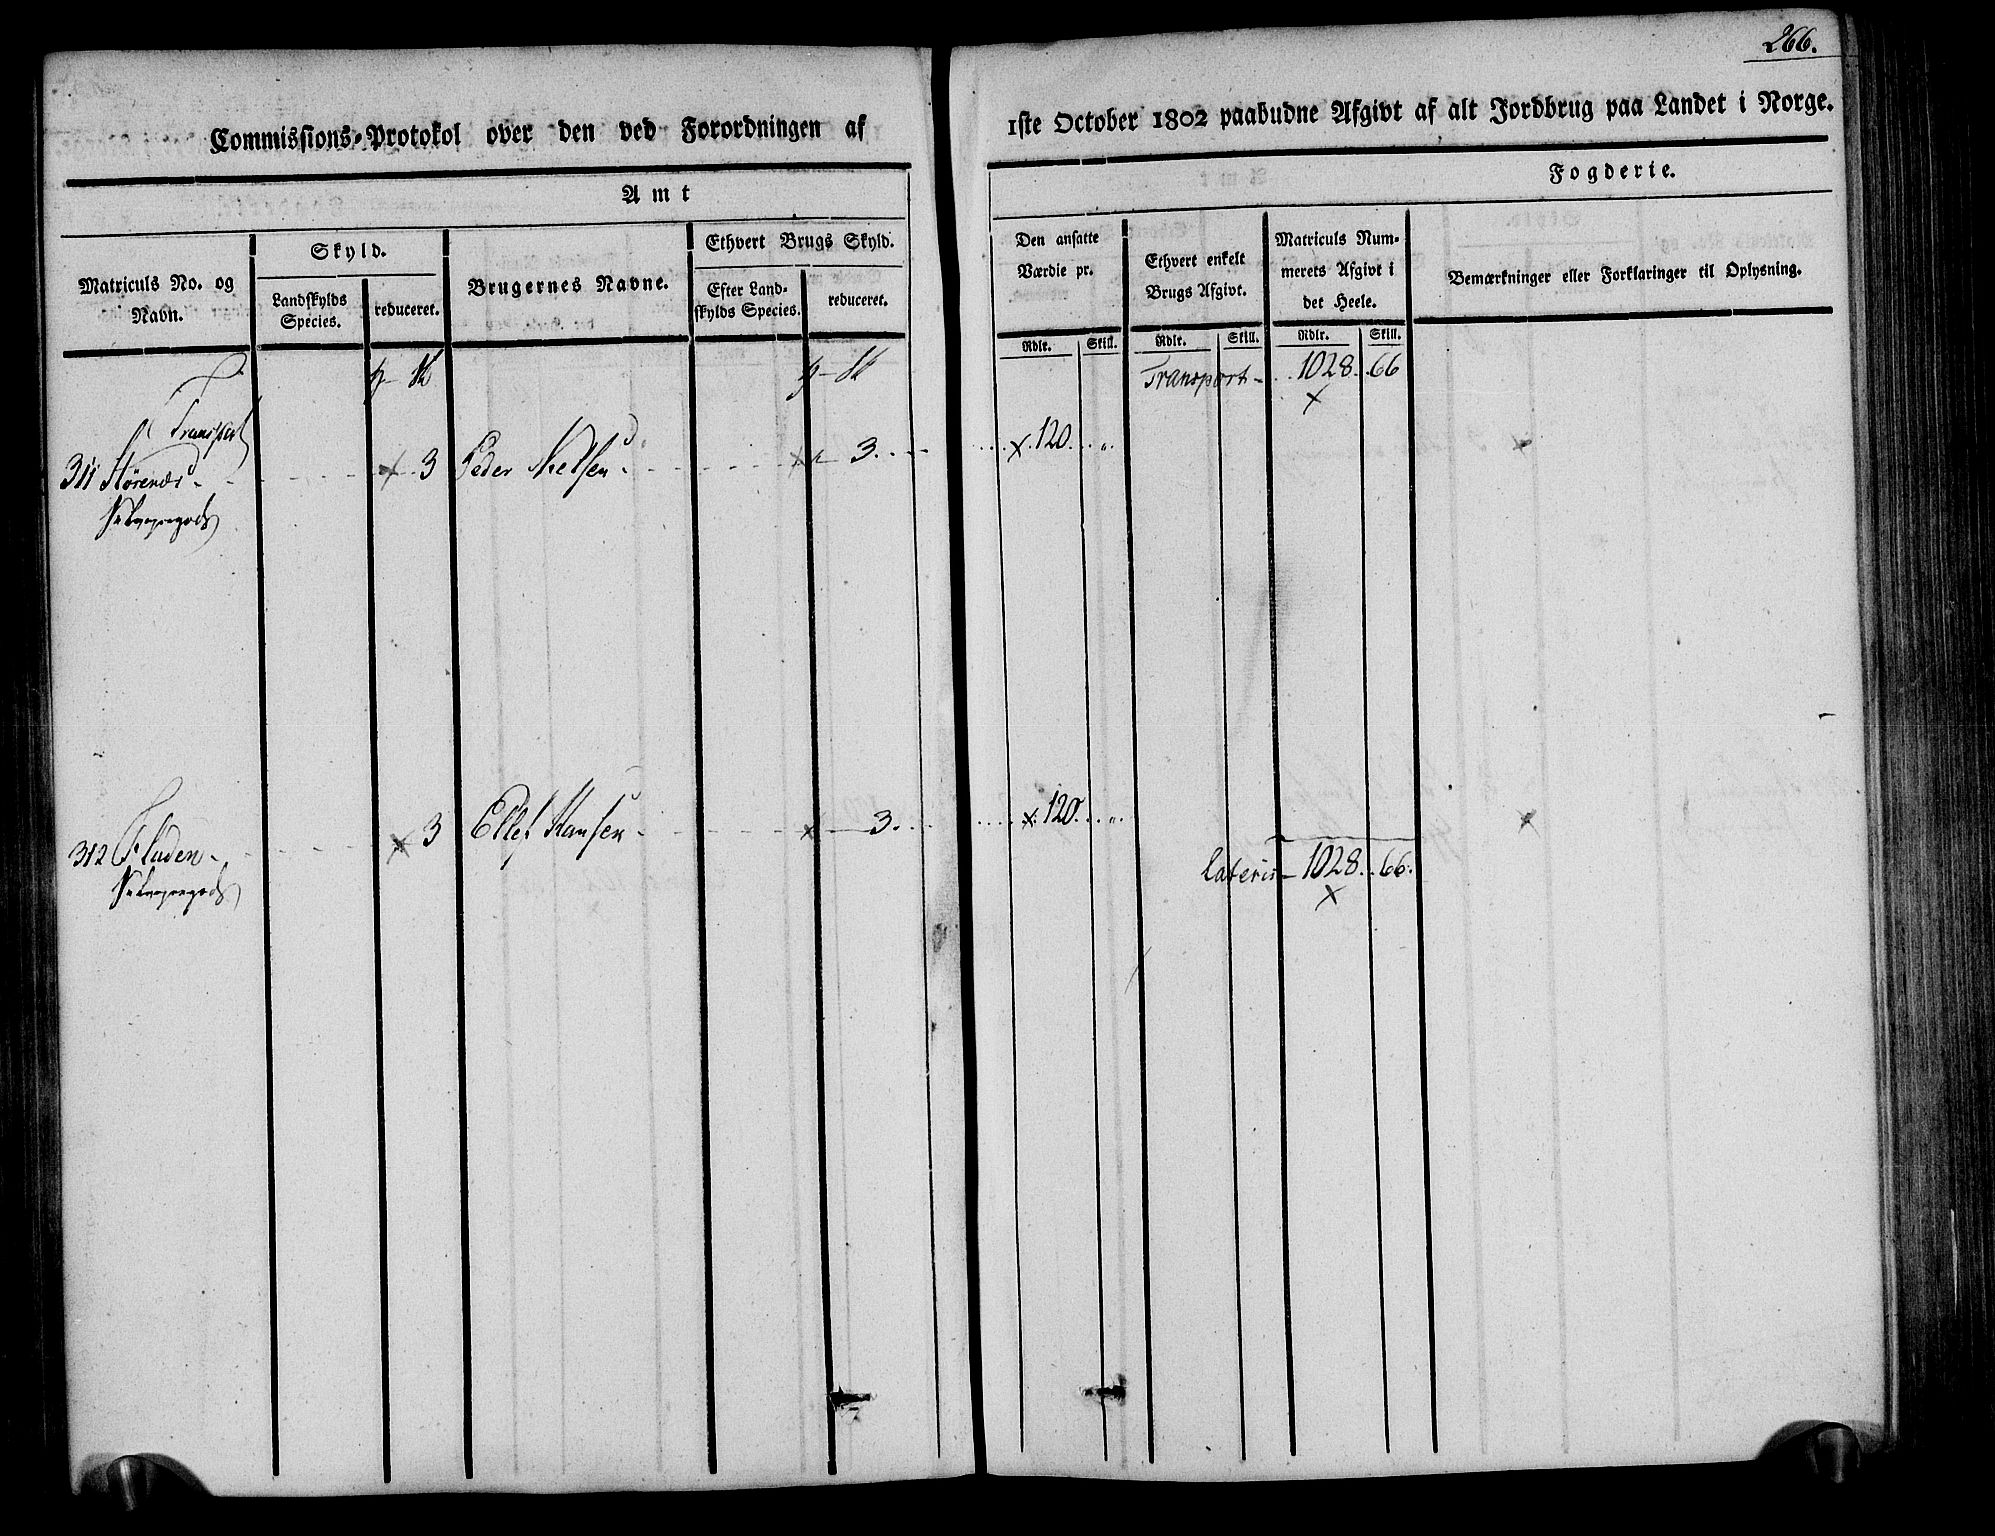 266.
Commissions-Protokol over den ved Forordningen af 1ste October 1802 paabudne Afgivt af alt Jordbrug paa Landet i Norge.
Amt
Fogderie.
Matriculs No. og Navn.
Skyld.
Landskylds Species.
reduceret.
Brugernes Navne.
Ethvert Brugs Skyld.
Efter Landskylds Species.
reduceret.
Den ansatte Værdie pr.
Rdlr. Skill.
Ethvert enkelt Brugs Afgivt.
Rdlr. Skill.
Matriculs Nummerets Afgivt i det Heele.
Rdlr. Skill.
Bemærkninger eller Forklaringer til Oplysning.
Transport 1028 66
Transport
311 3 Peder 3 120
312 Fladen 3 Ellef Hansen 3 120
Lateris 1028 66